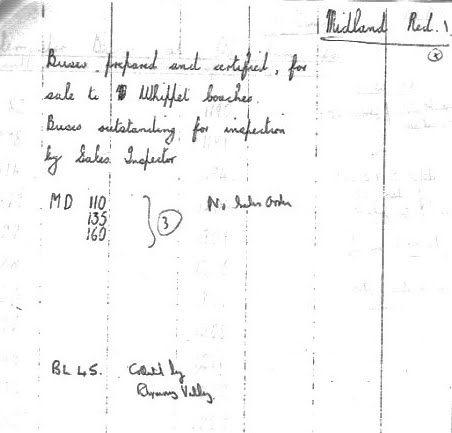 Midland Red. 1
Buses prepared and certified, for
sale to Whippet Coaches.
Buses outstanding for inspection
by Sales Inspector
MD 110 No Sales Order
135
160
3
BL 45. Collected by
Rhymney Valley.